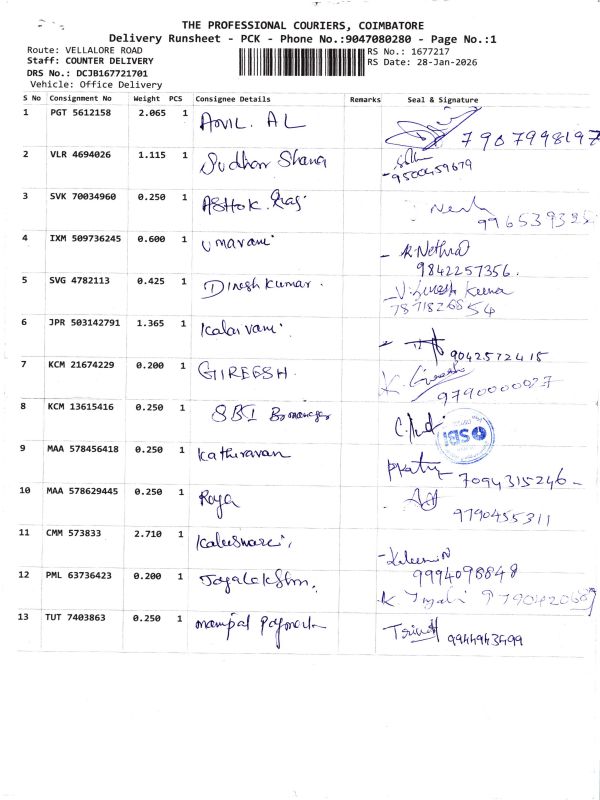 THE PROFESSIONAL COURIERS, COIMBATORE
Delivery Runsheet - PCK - Phone No.:9047080280 - Page No.:1
Route: VELLALORE ROAD RS No.: 1677217
Staff: COUNTER DELIVERY RS Date: 28-Jan-2026
DRS No.: DCJB167721701
Vehicle: Office Delivery
S No Consignment No Weight PCS Consignee Details Remarks Seal & Signature
1 PGT 5612158 2.065 1 ANIL. AL 7907998197
2 VLR 4694026 1.115 1 Sudhan Shana
9500459679
3 SVK 70034960 0.250 1 AShok. Raj
996539325
4 IXM 509736245 0.600 1 Umarani R.Nethra
9842257356.
5 SVG 4782113 0.425 1 Dinesh Kumar.
7871826854
6 JPR 503142791 1.365 1 Kalaivani
9042572415
7 KCM 21674229 0.200 1 GIREESH.
9790000027
8 KCM 13615416 0.250 1 SBI SBI
9 MAA 578456418 0.250 1 Kathiravan
7094315246
10 MAA 578629445 0.250 1 Raja
9790455311
11 CMM 573833 2.710 1 Kaleeswari,
9994098848
12 PML 63736423 0.200 1 Jayalakshmi.
13 TUT 7403863 0.250 1 manipal 9944943499